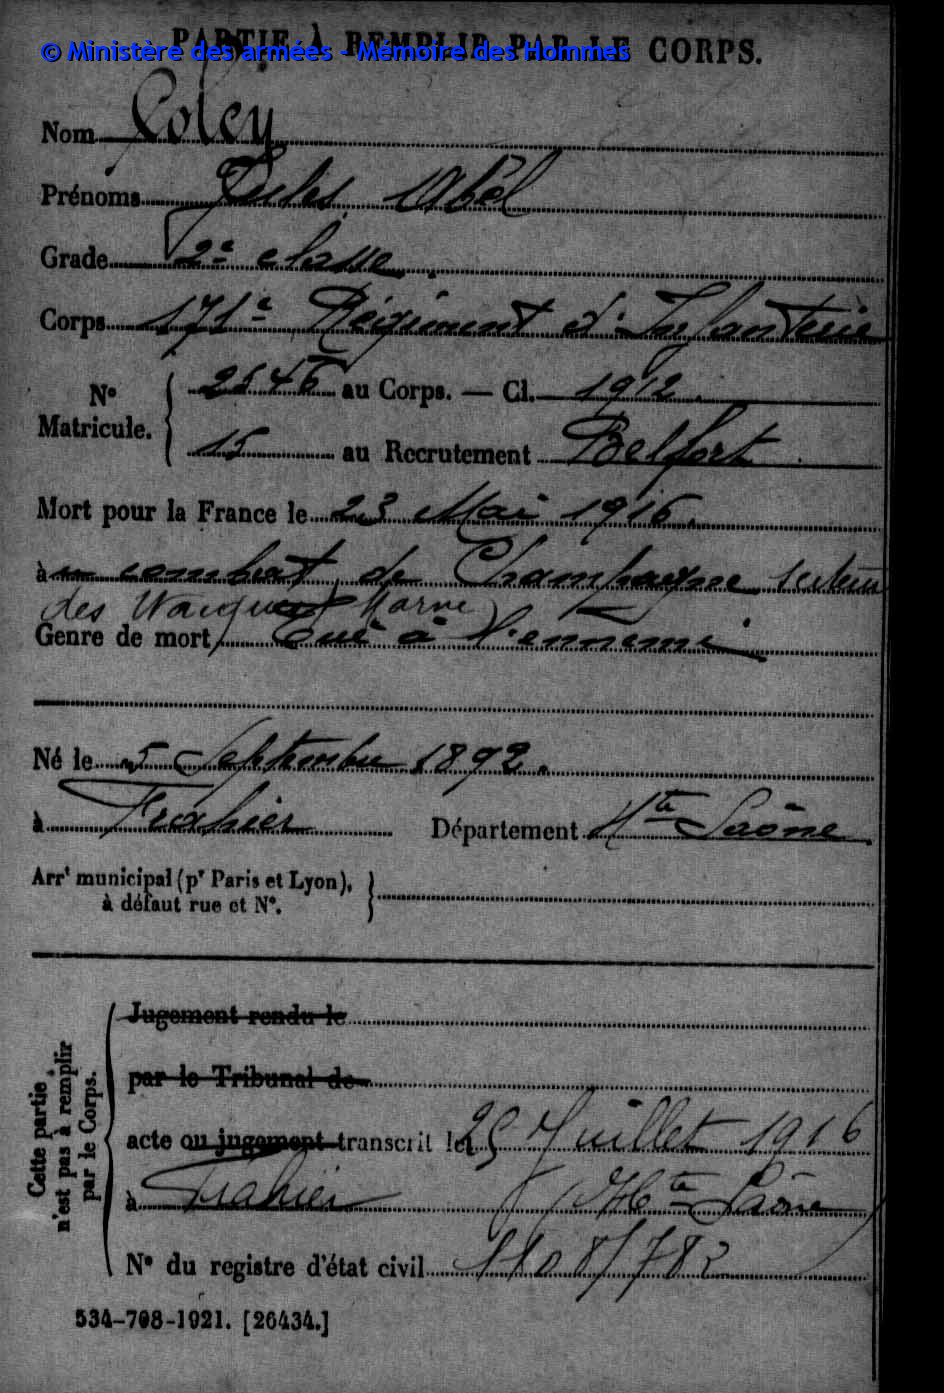 PARTIE À REMPLIR PAR LE CORPS.
© Ministère des armées - Mémoire des Hommes
Nom Coley
Prénoms Jules Abel
Grade 2e classe.
Corps 171e Régiment d'Infanterie
No Matricule. 2546 au Corps. — Cl. 1912.
15 au Recrutement Belfort
Mort pour la France le 23 Mai 1916.
à combat de Champagne secteur
des Wacques Marne)
Genre de mort Tué à l'ennemi
Né le 5 Septembre 1892.
à Frahier Département Hte Saône.
Arrt municipal (pr Paris et Lyon),
à défaut rue et No.
Cette partie n'est pas à remplir par le Corps.
Jugement rendu le
par le Tribunal de
acte ou jugement transcrit le 25 Juillet 1916
à Frahier (Hte Saône)
No du registre d'état civil 1108/782
534-708-1921. [26434.]